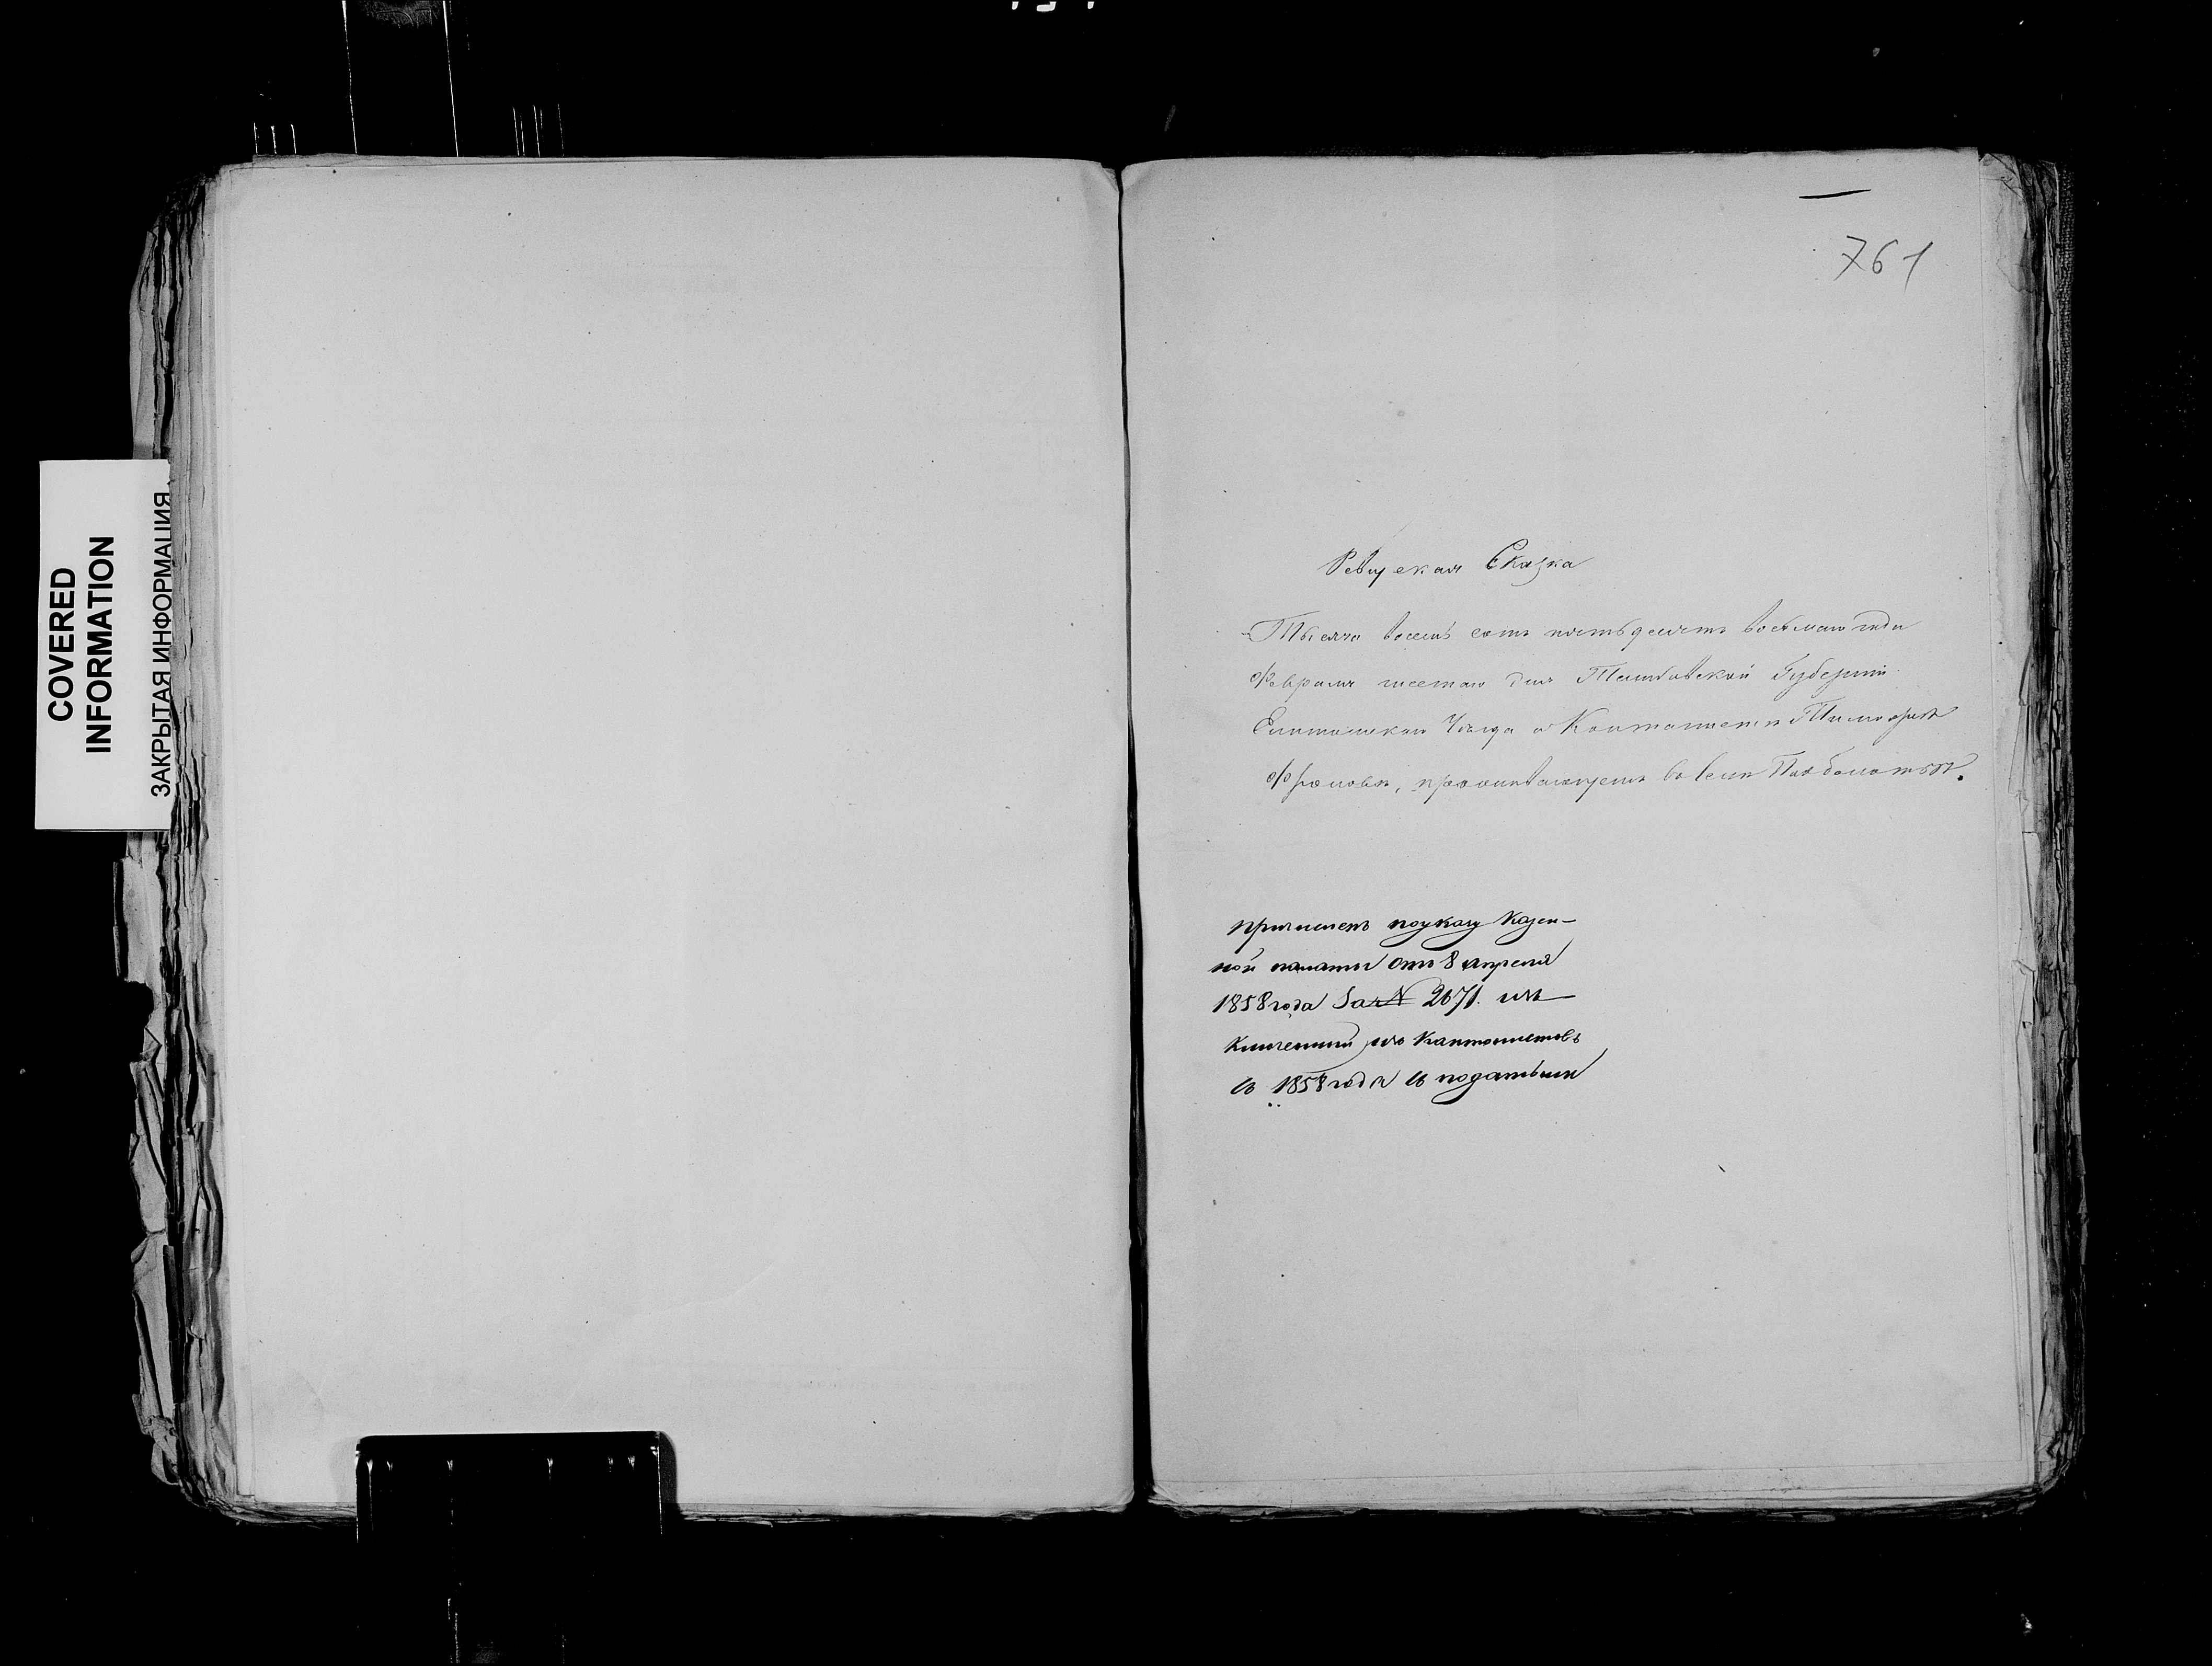 COVERED
INFORMATION
ЗАКРЫТАЯ ИНФОРМАЦИЯ
761
Ревизская Сказка
Тысяча восемь сотъ пятьдесятъ восьмаго года
Февраля шестаго дня Тамбовской Губерніи
Елатомскаго Уѣзда о Кантонистѣ Тимофеѣ
Фроловѣ, проживающемъ въ селе
причисленъ поуказу Казен-
ной палаты отъ 8 апреля
1858 года За № 2671. ис-
ключеніи изъ Кантонистовъ
съ 1858 года съ податьми